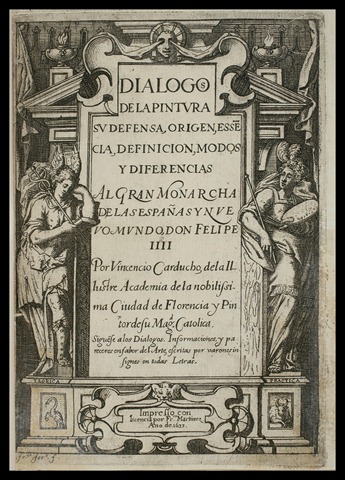 DIALOGOS
DE LA PINTVRA
SV DEFENSA, ORIGEN, ESSĒ
CIA, DEFINICION, MODOS
Y DIFERENCIAS
AL GRAN MONARCHA
DE LAS ESPAÑAS Y NVE
VO MVNDO, DON FELIPE
IIII
Por Vincencio Carducho, de la Il
lustre Academia de la nobilissi
ma Ciudad de Florencia y Pin
tor de su Magd. Catolica
Siguese a los Dialogos, Informaciones, y pa
receres en fabor del Arte, escritas por varones in
signes en todas Letras.
TEORICA
PRACTICA
Impresso con
licencia por Fr. Martinez
Año de 1633